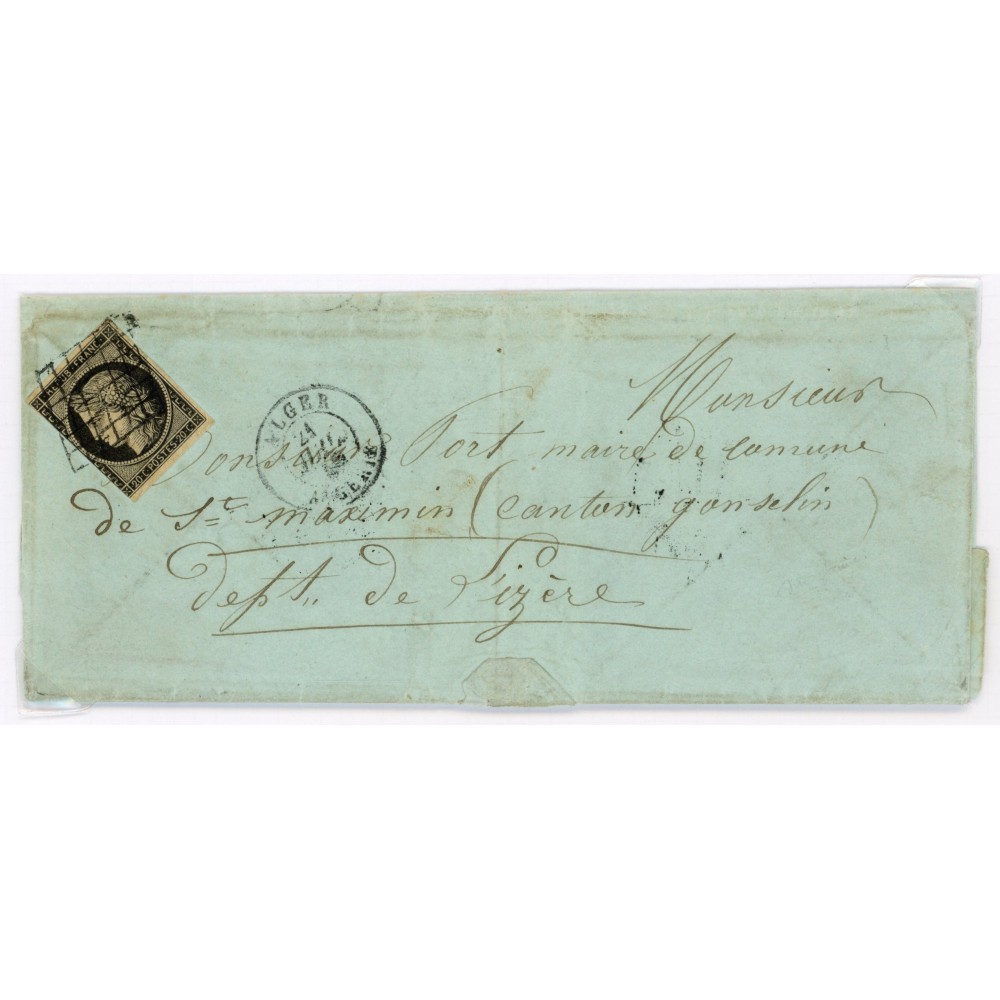 REPUB. FRANC.
20 C POSTES 20 C
ALGER
21
ALGERIE
Monsieur
Port maire de comune
de St. maximin (canton gonselin)
dept. de l'izère